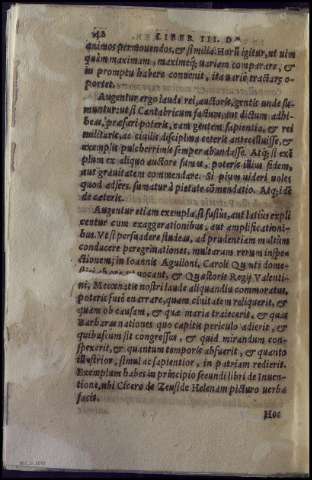 LIBER III. D
animos permouendos, & similia. Harũ igitur, ut uim
quàm maximam, maximeq́; uariam comparare, &
in promptu habere conuenit, ita uariè tractare o-
portet.
Augentur ergo laude rei, auctoris, gentis unde su-
muntur: ut si Cantabricum factum, aut dictum adhi-
beas, præfari poteris, eam gentem sapientia, & rei
militaris, ac ciuilis disciplina cæteris antecelluisse, &
exemplis pulcherrimis semper abundasse. Atq́; si exẽ
plum ex aliquo auctore sumas, poteris illius fidem,
aut grauitatem commendare. Si pium uideri uoles
quod adfers, sumatur à pietate cõmendatio. Atq́; idẽ
de cæteris.
Augentur etiam exempla, si fusius, aut latius expli
centur cum exaggerationibus, aut amplificationi-
bus. Vt si persuadere studeas, ad prudentiam multùm
conducere peregrinationes, multarum rerum inspe-
ctionem; in Ioannis Aguiloni, Caroli Quinti dome-
uocant, & Quæstoris Regij Valenti-
ni, Mecœnatis nostri laude aliquandiu commoratus,
poteris fusè enarrare, quam ciuitatem reliquerit, &
quam ob causam, & quà maria traiecerit, & quas
Barbaras nationes quo capitis periculo adierit, &
quibuscum sit congressus, & quid mirandum con-
spexerit, & quantum temporis absuerit, & quanto
illustrior, simul ac sapientior, in patriam redierit.
Exemplum habes in principio secundi libri de Inuen-
tione, ubi Cicero de Zeuside Helenam pictuto uerba
facit.
Hoc